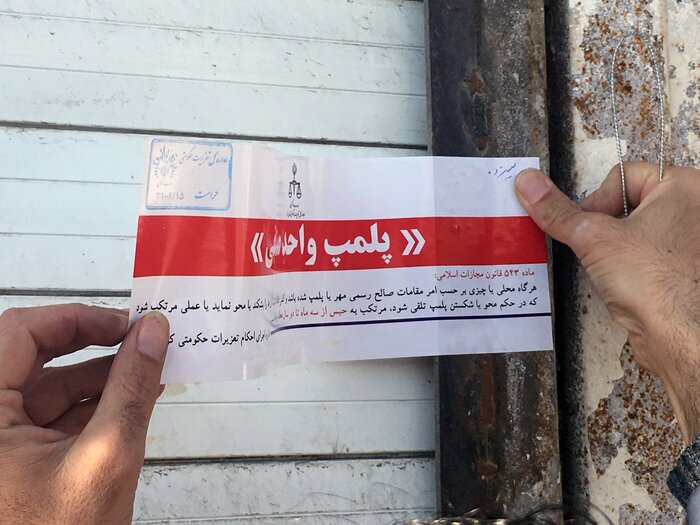 سیزده
حراست
۲۱۰۱/۱۵
« پلمپ واحد »
ماده ۵۴۳ قانون مجازات اسلامی:
هرگاه محلی یا چیزی بر حسب امر مقامات صالح رسمی مهر یا پلمپ شده باشد و بشکند یا محو نماید یا عملی مرتکب شود
که در حکم محو یا شکستن پلمپ تلقی شود، مرتکب به حبس از سه ماه تا دو سال
اجرای احکام تعزیرات حکومتی